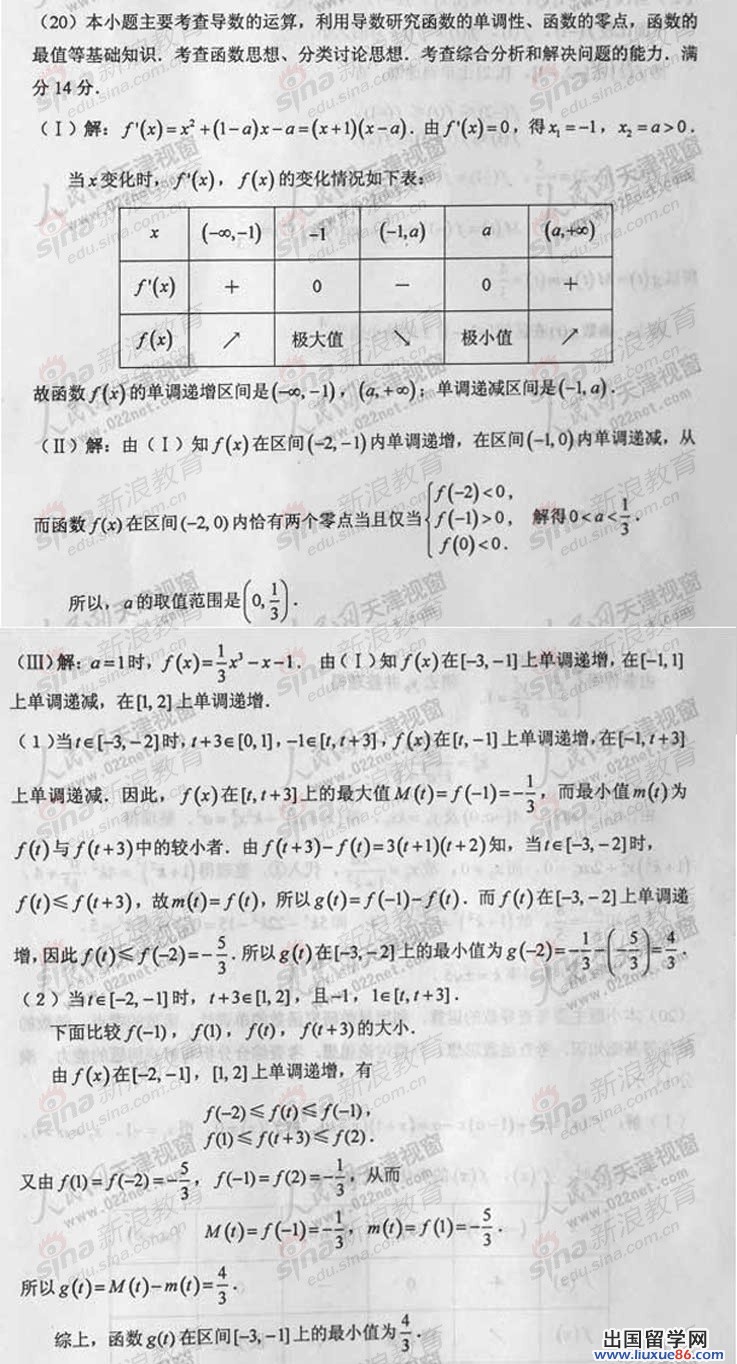 (20)本小题主要考查导数的运算,利用导数研究函数的单调性、函数的零点,函数的
最值等基础知识.考查函数思想、分类讨论思想.考查综合分析和解决问题的能力.满
分14分.
(Ⅰ)解:f'(x)=x²+(1-a)x-a=(x+1)(x-a).由f'(x)=0,得x₁=-1,x₂=a>0.
当x变化时,f'(x),f(x)的变化情况如下表:
x (-∞,-1) -1 (-1,a) a (a,+∞)
f'(x) + 0 - 0 +
f(x) ↗ 极大值 ↘ 极小值 ↗
故函数f(x)的单调递增区间是(-∞,-1),(a,+∞);单调递减区间是(-1,a).
(Ⅱ)解:由(Ⅰ)知f(x)在区间(-2,-1)内单调递增,在区间(-1,0)内单调递减,从
而函数f(x)在区间(-2,0)内恰有两个零点当且仅当{f(-2)<0, f(-1)>0, f(0)<0. 解得0<a<1/3.
所以,a的取值范围是(0,1/3).
(Ⅲ)解:a=1时,f(x)=1/3x³-x-1.由(Ⅰ)知f(x)在[-3,-1]上单调递增,在[-1,1]
上单调递减,在[1,2]上单调递增.
(1)当t∈[-3,-2]时,t+3∈[0,1],-1∈[t,t+3],f(x)在[t,-1]上单调递增,在[-1,t+3]
上单调递减.因此,f(x)在[t,t+3]上的最大值M(t)=f(-1)=-1/3,而最小值m(t)为
f(t)与f(t+3)中的较小者.由f(t+3)-f(t)=3(t+1)(t+2)知,当t∈[-3,-2]时,
f(t)≤f(t+3),故m(t)=f(t),所以g(t)=f(-1)-f(t).而f(t)在[-3,-2]上单调递
增,因此f(t)≤f(-2)=-5/3.所以g(t)在[-3,-2]上的最小值为g(-2)=-1/3-(-5/3)=4/3.
(2)当t∈[-2,-1]时,t+3∈[1,2],且-1,1∈[t,t+3].
下面比较f(-1),f(1),f(t),f(t+3)的大小.
由f(x)在[-2,-1],[1,2]上单调递增,有
f(-2)≤f(t)≤f(-1),
f(1)≤f(t+3)≤f(2).
又由f(1)=f(-2)=-5/3,f(-1)=f(2)=-1/3,从而
M(t)=f(-1)=-1/3,m(t)=f(1)=-5/3.
所以g(t)=M(t)-m(t)=4/3.
综上,函数g(t)在区间[-3,-1]上的最小值为4/3.
出国留学网
www.liuxue86.com